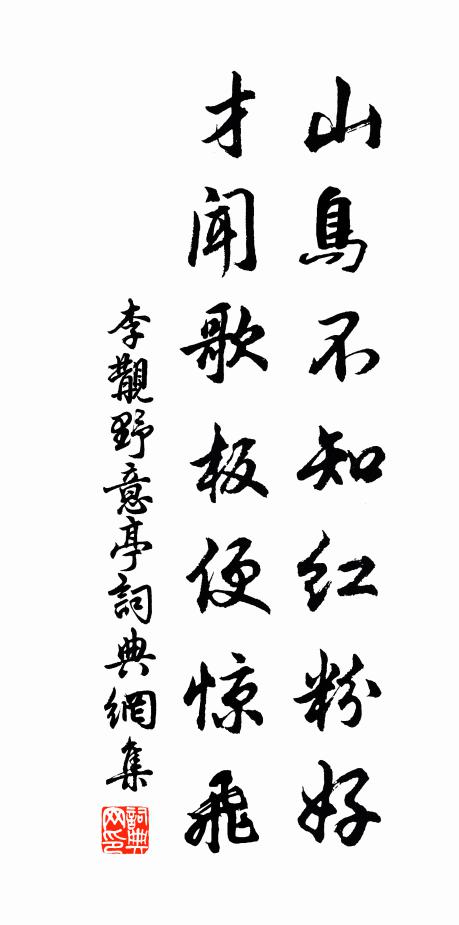 山鳥不知红粉好
才闻歌板便惊飛
李觀野意亭詞典網集
詞典
网印